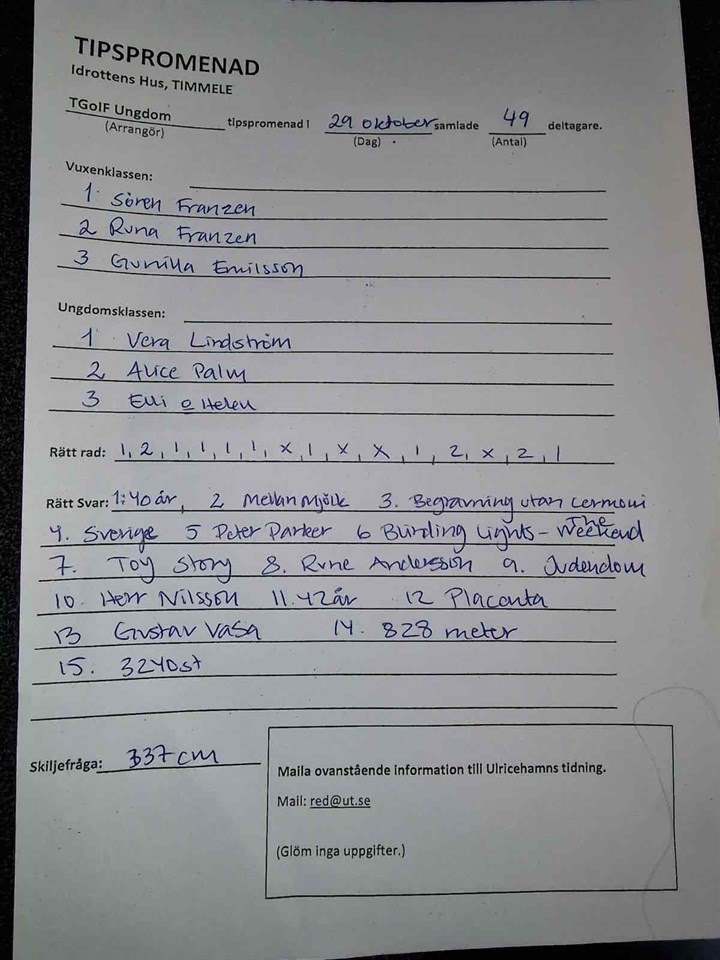 TIPSPROMENAD
Idrottens Hus, TIMMELE
TGoIF Ungdom tipspromenad I 29 oktober samlade 49 deltagare.
(Arrangör) (Dag) (Antal)
Vuxenklassen:
1. Sören Franzen
2 Runa Franzen
3 Gunilla Emilsson
Ungdomsklassen:
1 Vera Lindström
2 Alice Palm
3 Elli o Helen
Rätt rad: 1, 2, 1, 1, 1, 1, x, 1, x, x, 1, 2, x, 2, 1
Rätt Svar: 1: 40 år, 2 Mellanmjölk 3. Begravning utan cermoni
4. Sverige 5 Peter Parker 6 Blinding Lights - The Weekend
7. Toy Story 8. Rune Andersson 9. Judendom
10. Herr Nilsson 11. 42 år 12 Placenta
13 Gustav Vasa 14. 828 meter
15. 3240st
Skiljefråga: 337 cm
Maila ovanstående information till Ulricehamns tidning.
Mail: red@ut.se
(Glöm inga uppgifter.)